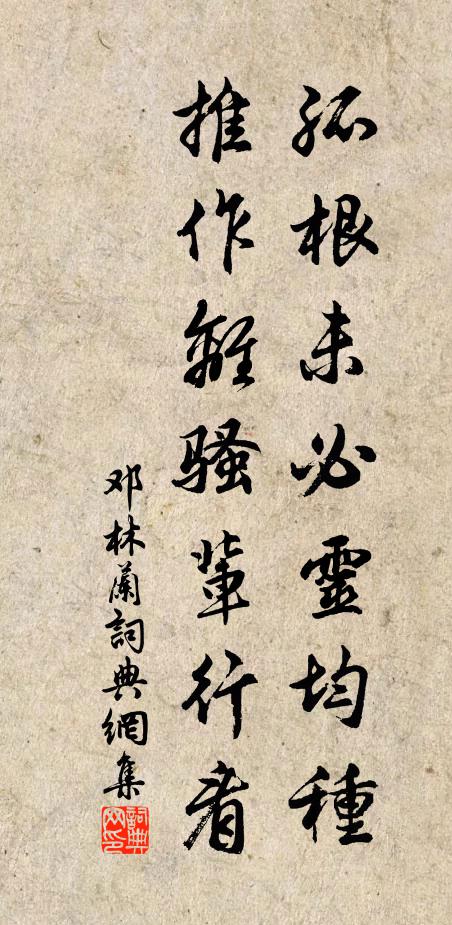 孤根未必靈均種
推作離騷輩行看
邓林蘭詞典網集
詞典網印